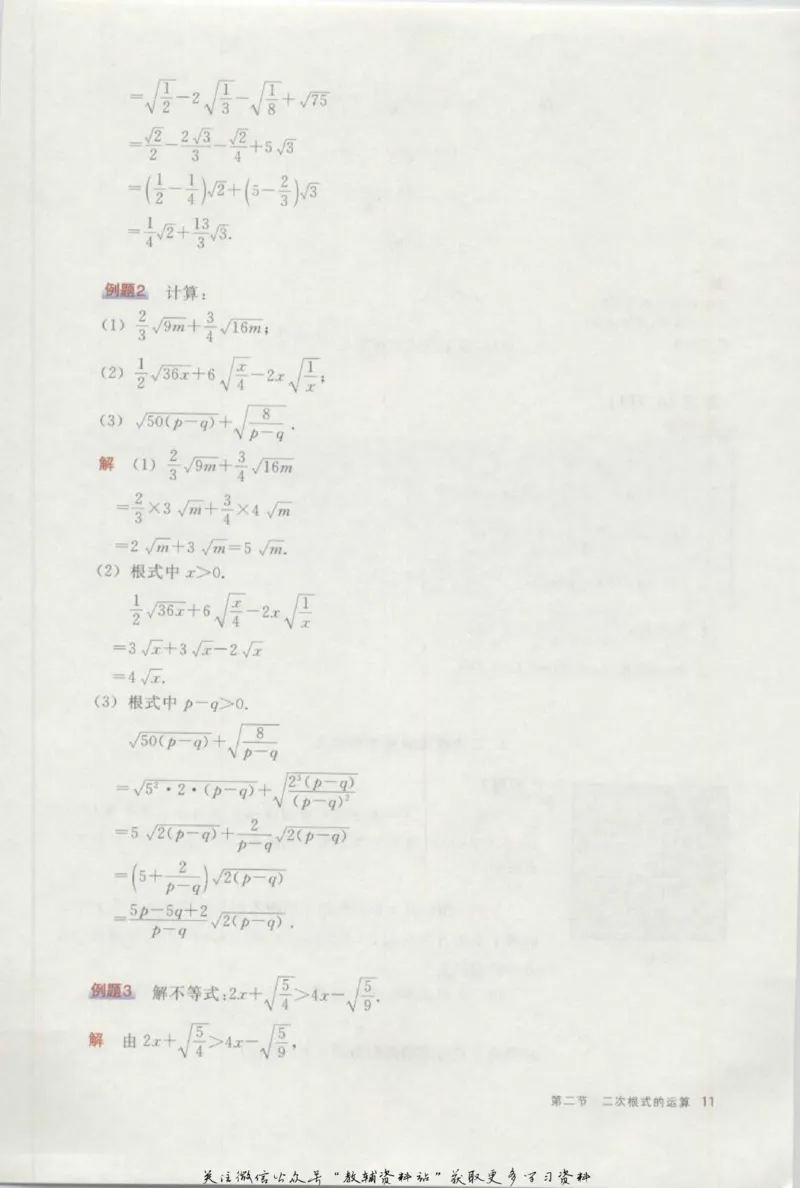 =√(1/2)-2√(1/3)-√(1/8)+√75
=√2/2-2√3/3-√2/4+5√3
=(1/2-1/4)√2+(5-2/3)√3
=1/4√2+13/3√3.
例题2 计算:
(1) 2/3√(9m)+3/4√(16m);
(2) 1/2√(36x)+6√(x/4)-2x√(1/x);
(3) √(50(p-q))+√(8/(p-q)).
解 (1) 2/3√(9m)+3/4√(16m)
=2/3×3√m+3/4×4√m
=2√m+3√m=5√m.
(2) 根式中 x>0.
1/2√(36x)+6√(x/4)-2x√(1/x)
=3√x+3√x-2√x
=4√x.
(3) 根式中 p-q>0.
√(50(p-q))+√(8/(p-q))
=√(5²·2·(p-q))+√(2³(p-q)/(p-q)²)
=5√(2(p-q))+2/(p-q)√(2(p-q))
=(5+2/(p-q))√(2(p-q))
=(5p-5q+2)/(p-q)√(2(p-q)).
例题3 解不等式:2x+√(5/4)>4x-√(5/9).
解 由 2x+√(5/4)>4x-√(5/9),
第二节 二次根式的运算 11
关注微信公众号“教辅资料站”获取更多学习资料